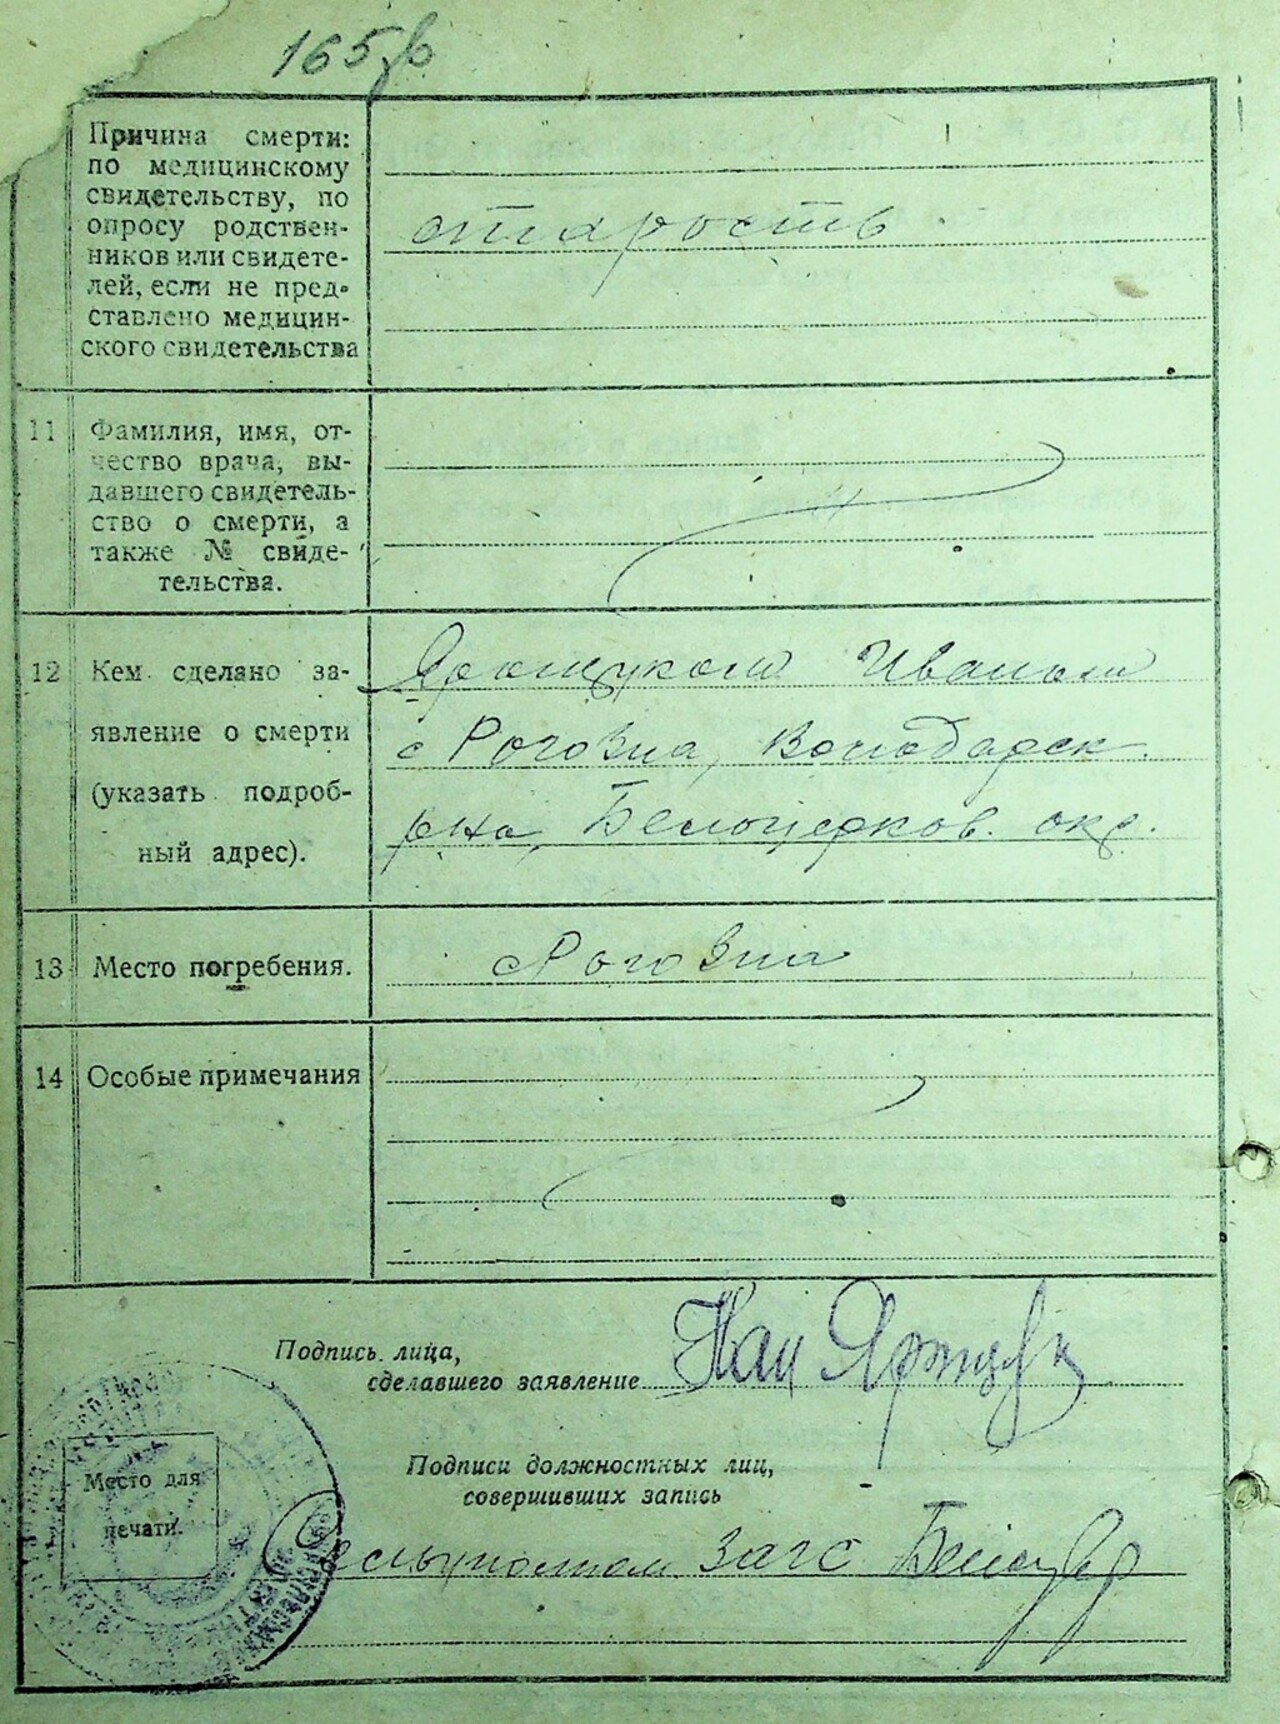 165
Причина смерти:
по медицинскому
свидетельству, по
опросу родствен-
ников или свидете-
лей, если не пред-
ставлено медицин-
ского свидетельства
старость
11 Фамилия, имя, от-
чество врача, вы-
давшего свидетель-
ство о смерти, а
также № свиде-
тельства.
12 Кем сделано за- Иваном
явление о смерти с Роговна, Володарск.
(указать подроб- рна, Белоцерков. окр.
ный адрес).
13 Место погребения. с Роговна
14 Особые примечания
Подпись лица,
сделавшего заявление
Подписи должностных лиц,
совершивших запись
Место для
печати.
ЗАГС